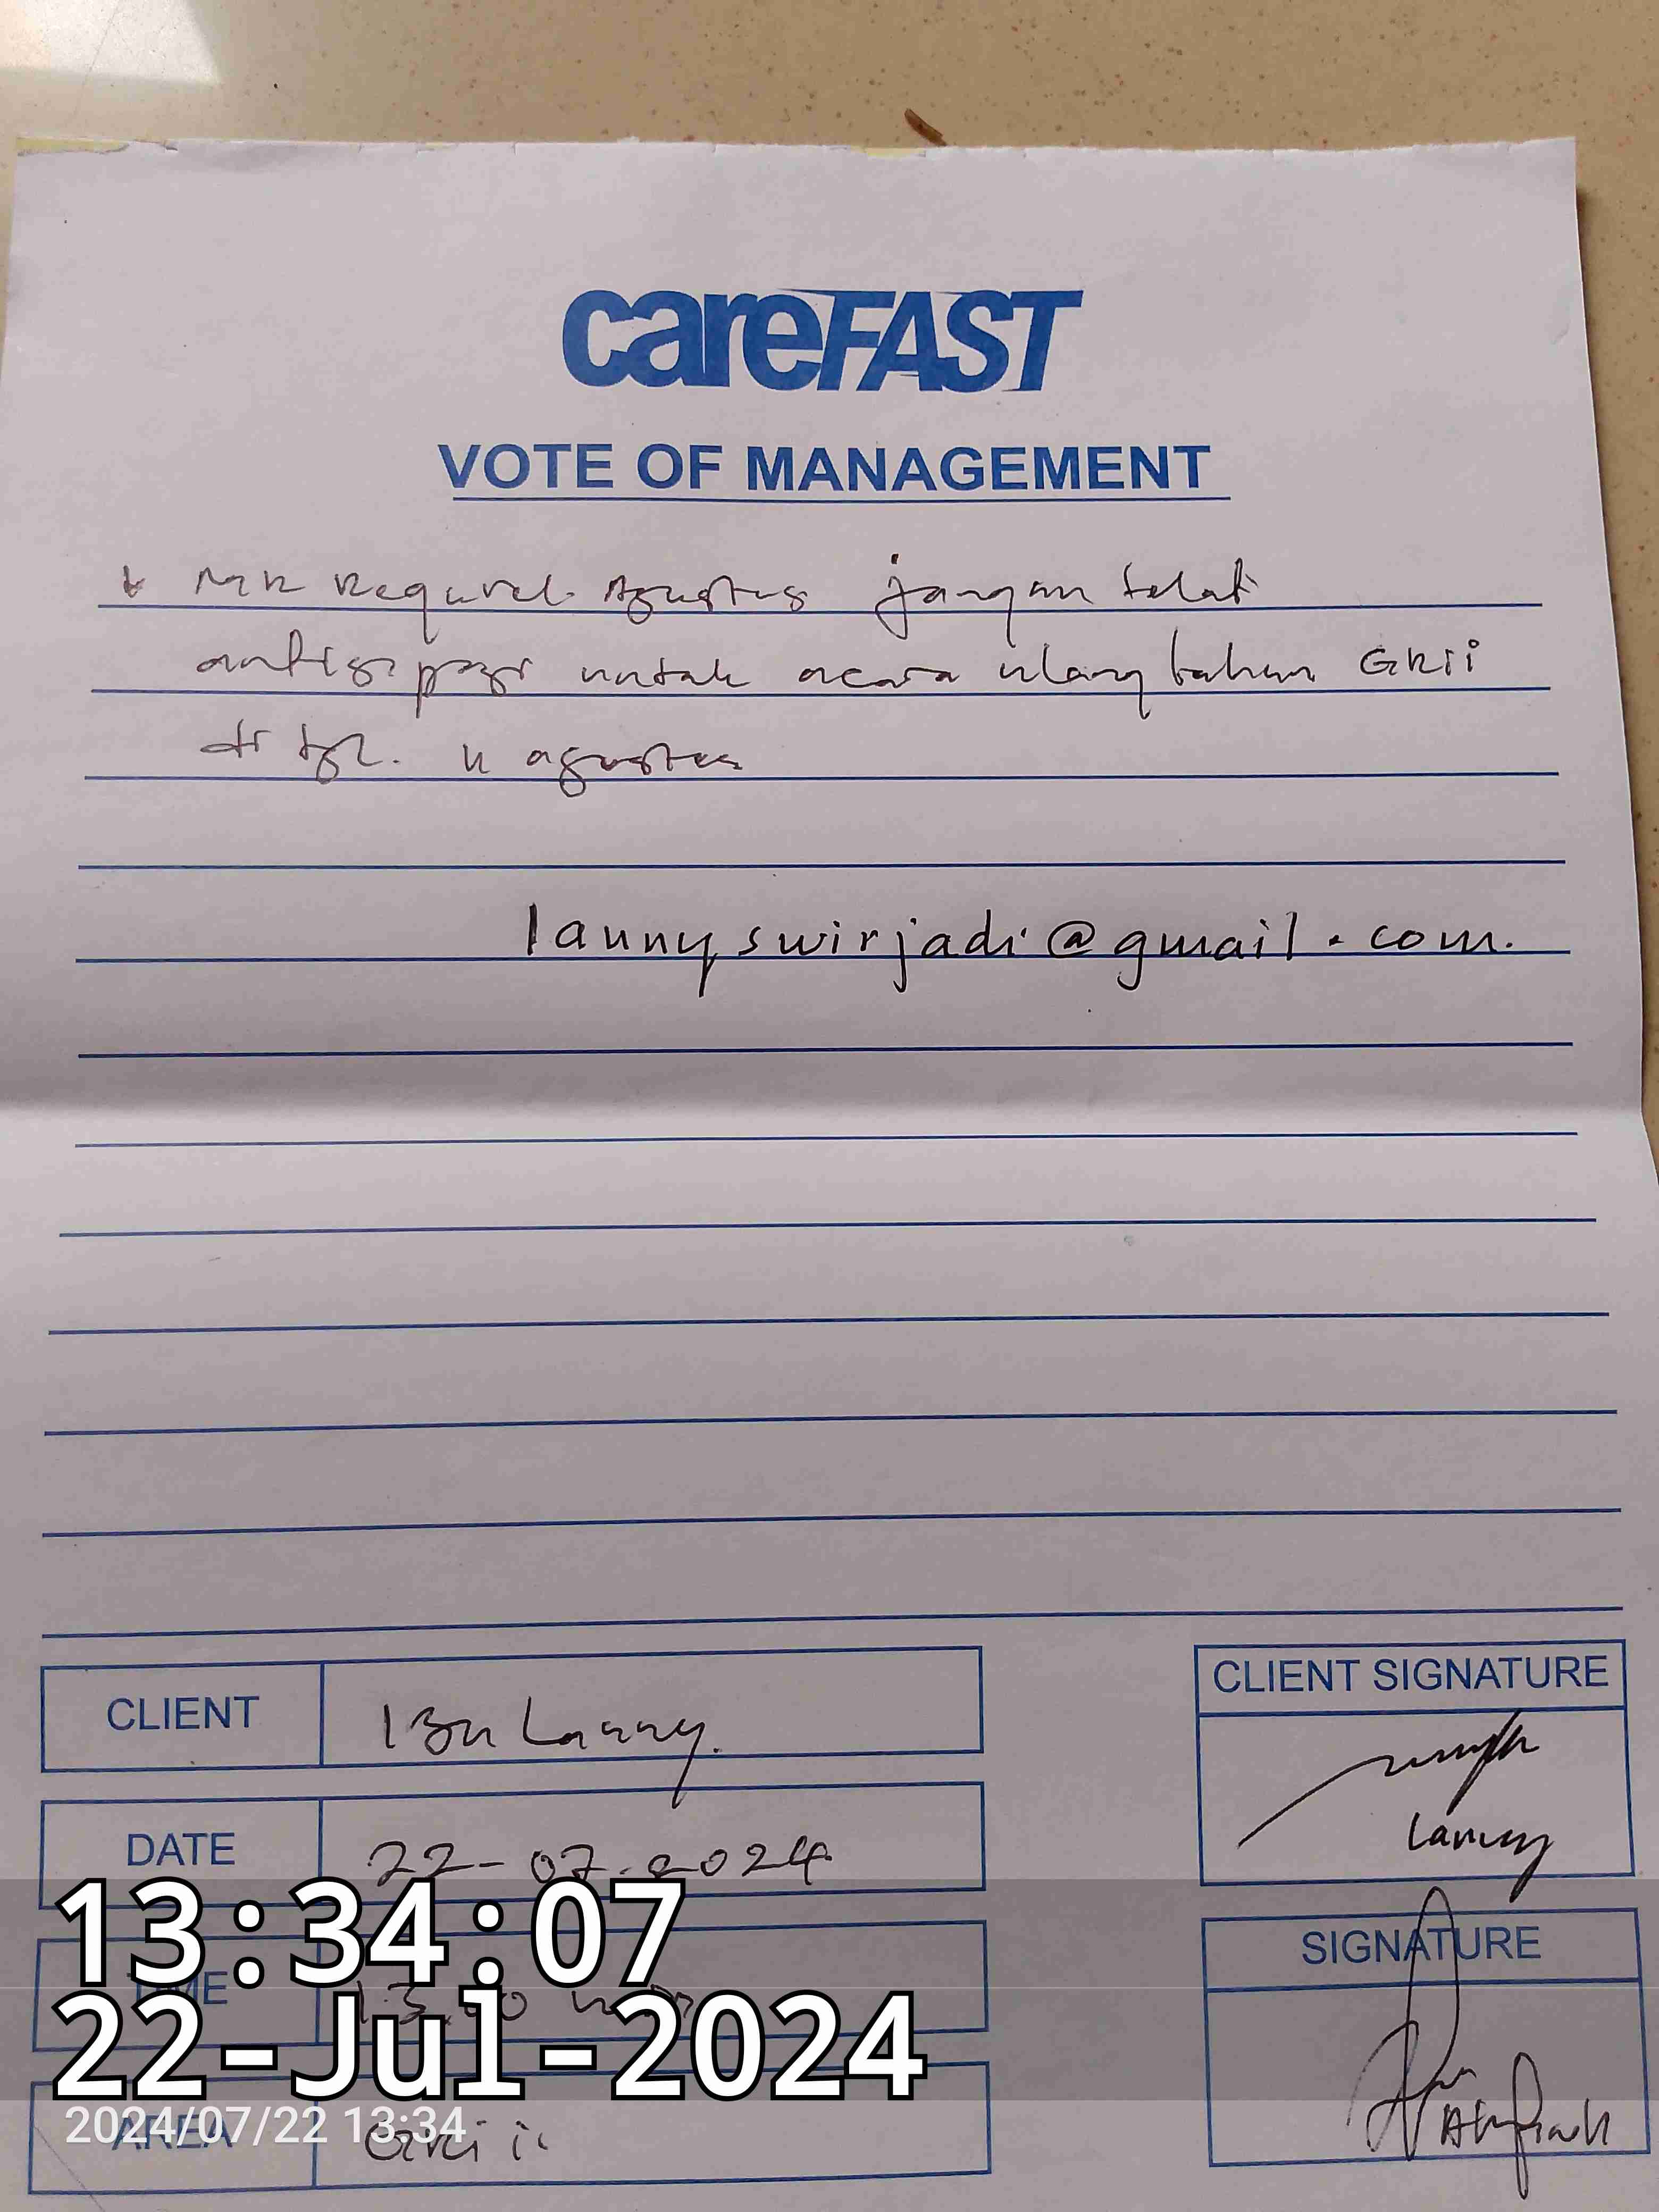 careFAST
VOTE OF MANAGEMENT
Agustus jangan telat
antisipasi untuk acara ulang tahun GKII
di tgl. 11 agustus
lannyswirjadi@gmail.com.
CLIENT
Ibu Lanny.
CLIENT SIGNATURE
Lanny
DATE
22-07-2024
13:34:07
TIME
13.00
SIGNATURE
22-Jul-2024
2024/07/22 13:34
AREA
GKII